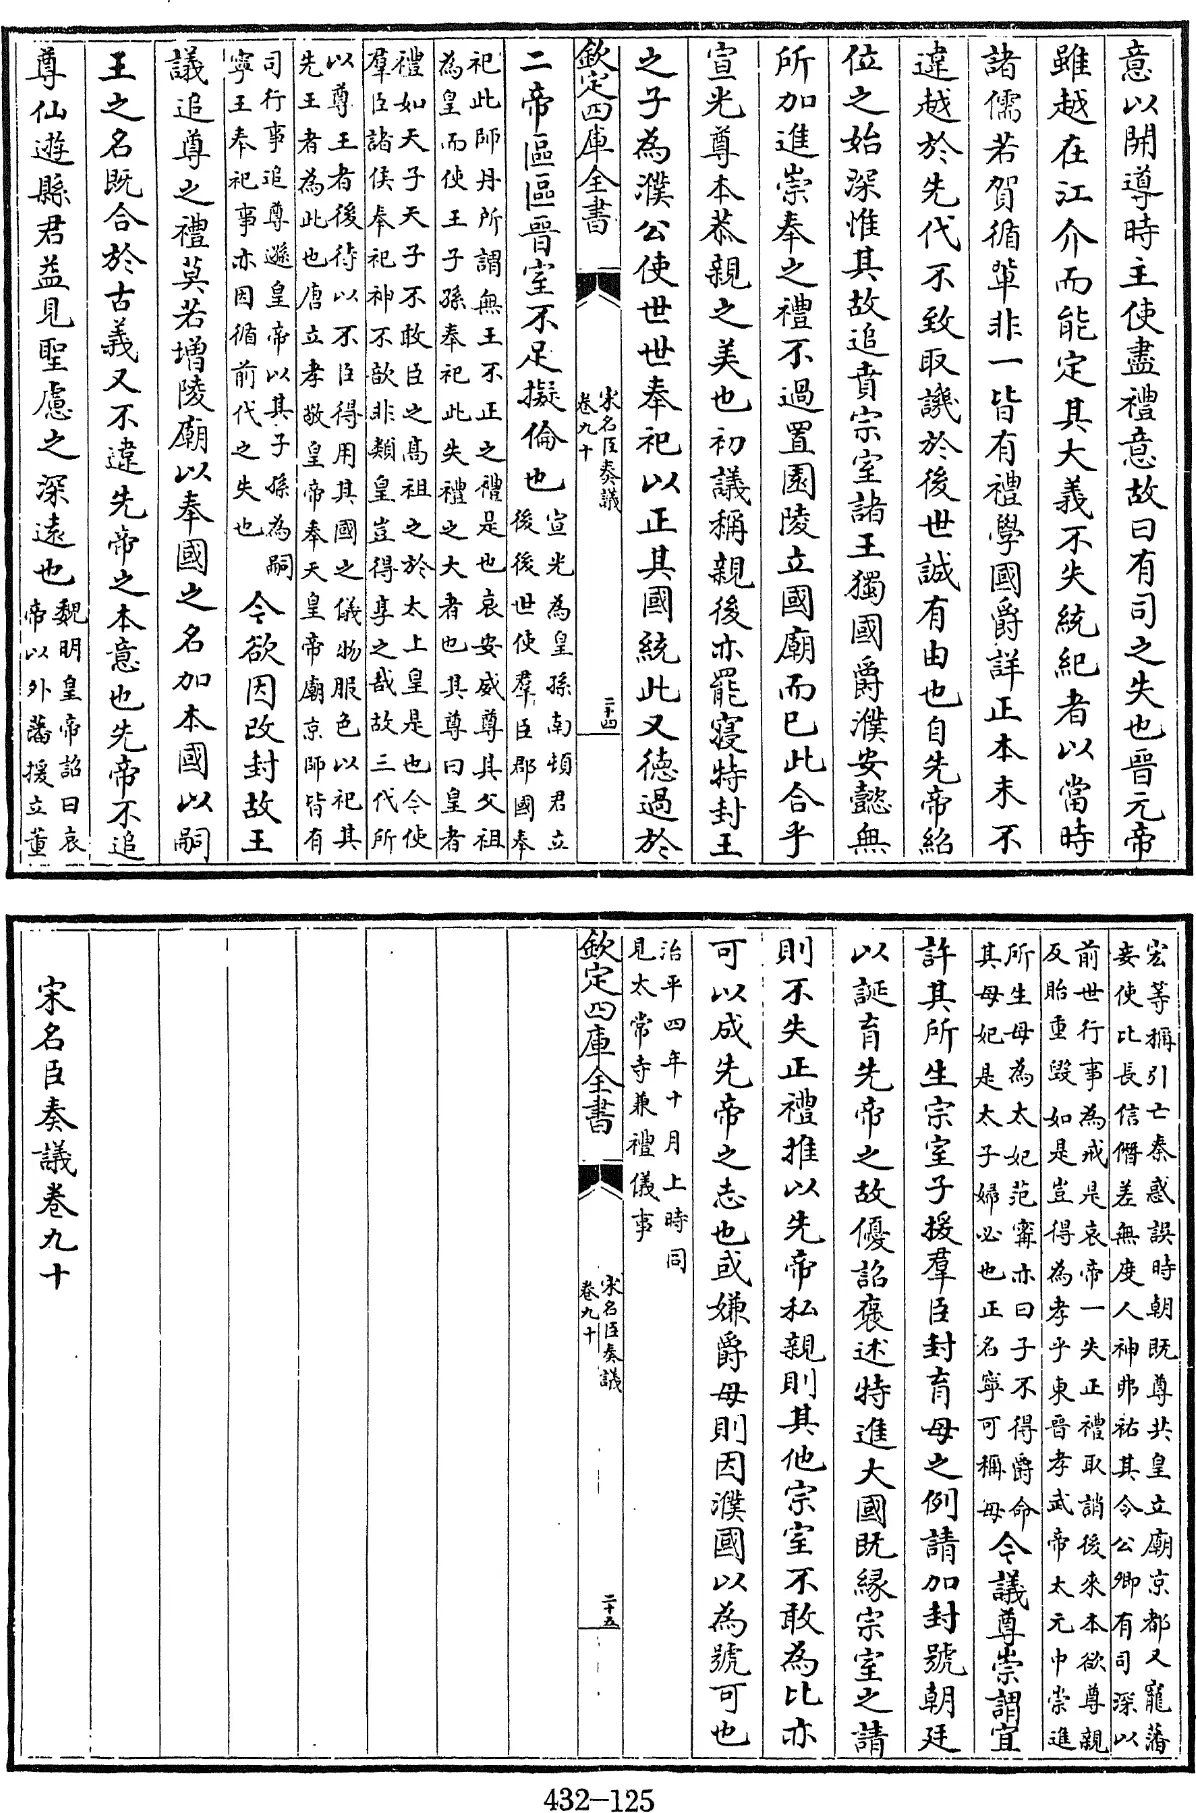 意以開導時主使盡禮意故曰有司之失也晉元帝
雖越在江介而能定其大義不失統紀者以當時
諸儒若賀循軰非一皆有禮學國爵詳正本末不
違越於先代不致取譏於後世誠有由也自先帝紹
位之始深惟其故追賁宗室諸王獨國爵濮安懿無
所加進崇奉之禮不過置園陵立國廟而已此合乎
宣光尊本恭親之美也初議稱親後亦罷寢特封王
之子為濮公使世世奉祀以正其國統此又德過於
欽定四庫全書
宋名臣奏議
卷九十
二十四
二帝區區晉室不足擬倫也
宣光為皇孫南頓君立
後後世使羣臣郡國奉
祀此師丹所謂無王不正之禮是也哀安威尊其父祖
為皇而使王子孫奉祀此失禮之大者也其尊曰皇者
禮如天子天子不敢臣之高祖之於太上皇是也今使
羣臣諸侯奉祀神不歆非類皇豈得享之哉故三代所
以尊王者後待以不臣得用其國之儀物服色以祀其
先王者為此也唐立孝敬皇帝奉天皇帝廟京師皆有
司行事追尊遜皇帝以其子孫為嗣
寧王奉祀事亦因循前代之失也
今欲因改封故王
議追尊之禮莫若增陵廟以奉國之名加本國以嗣
王之名既合於古義又不違先帝之本意也先帝不追
尊仙遊縣君益見聖慮之深遠也
魏明皇帝詔曰哀
帝以外藩援立董
宏等稱引亡秦惑誤時朝既尊共皇立廟京都又寵藩
妾使比長信僭差無度人神弗祐其令公卿有司深以
前世行事為戒是哀帝一失正禮取誚後來本欲尊親
反貽重毀如是豈得為孝乎東晉孝武帝太元中崇進
所生母為太妃范甯亦曰子不得爵命
其母妃是太子婦必也正名寧可稱母
今議尊崇謂宜
許其所生宗室子援羣臣封育母之例請加封號朝廷
以誕育先帝之故優詔褒述特進大國既緣宗室之請
則不失正禮推以先帝私親則其他宗室不敢為比亦
可以成先帝之志也或嫌爵母則因濮國以為號可也
治平四年十月上時同
見太常寺兼禮儀事
欽定四庫全書
宋名臣奏議
卷九十
二十五
宋名臣奏議卷九十
432-125